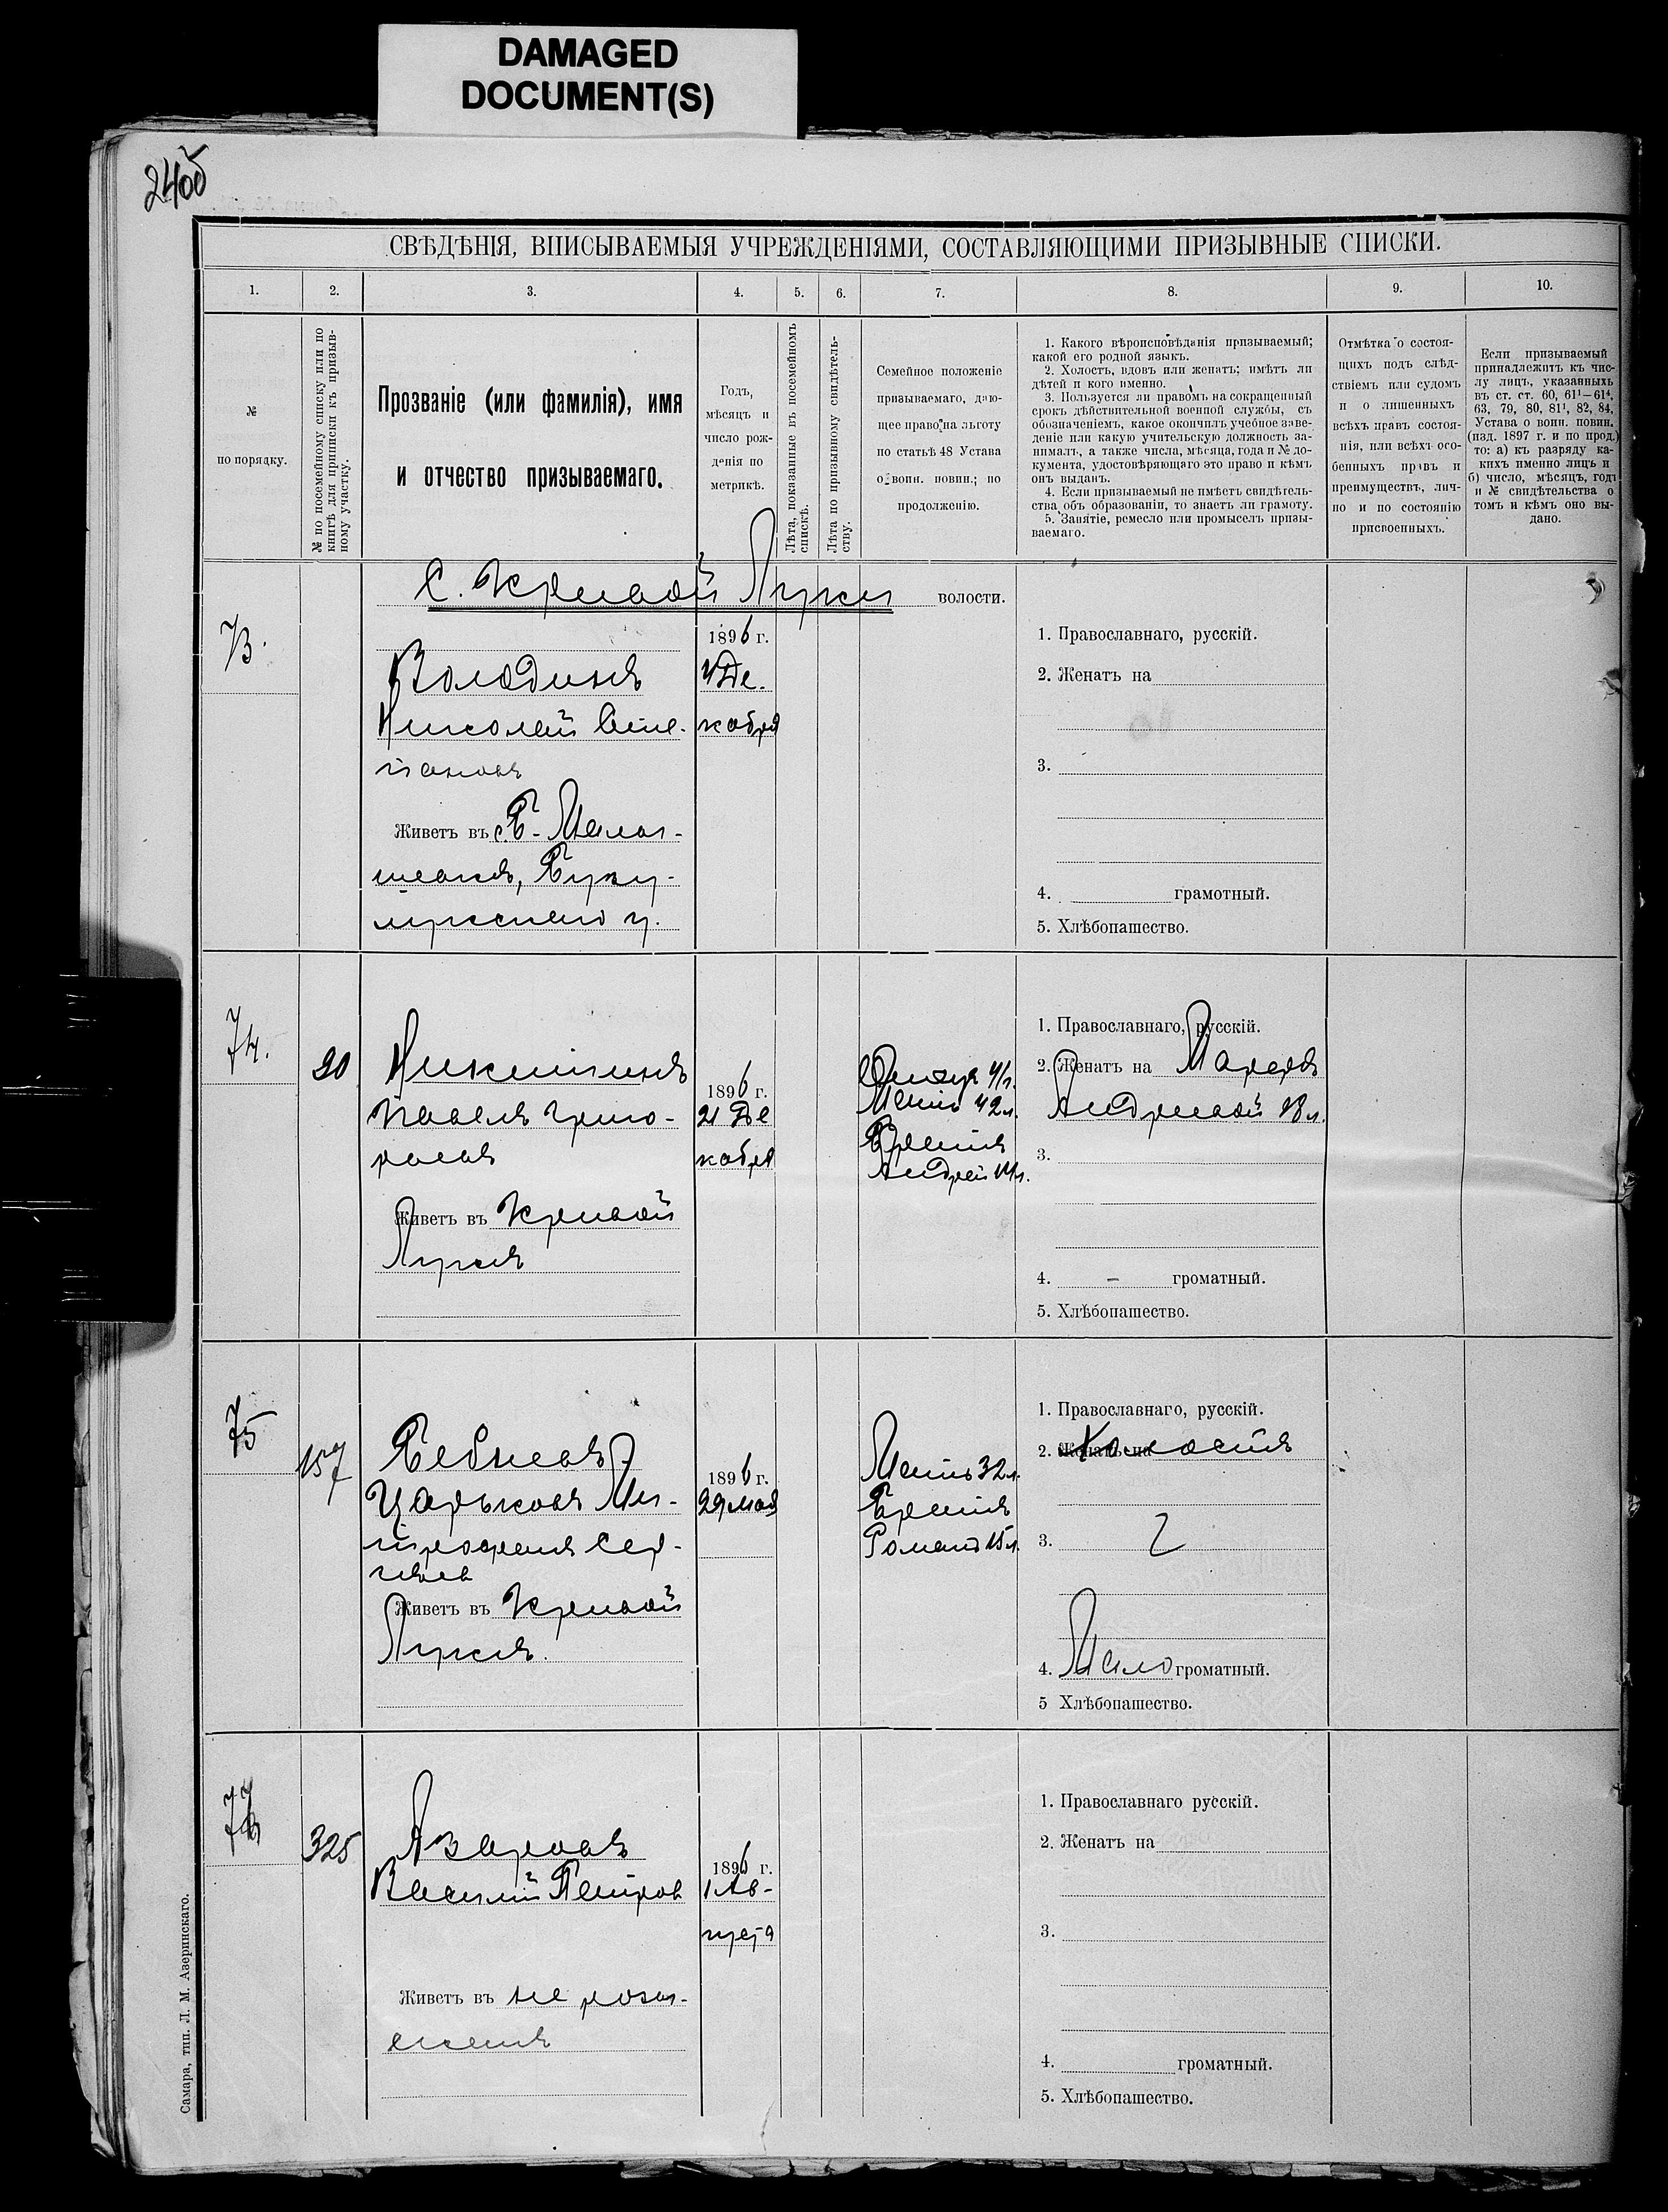 DAMAGED
DOCUMENT(S)
24об
СВѢДѢНІЯ, ВПИСЫВАЕМЫЯ УЧРЕЖДЕНІЯМИ, СОСТАВЛЯЮЩИМИ ПРИЗЫВНЫЕ СПИСКИ.
1. 2. 3. 4. 5. 6. 7. 8. 9. 10.
№
по порядку.
№ по посемейному списку или по
книгѣ для приписки къ призыв-
ному участку.
Прозваніе (или фамилія), имя
и отчество призываемаго.
Годъ,
мѣсяцъ и
число рож-
денія по
метрикѣ.
Лѣта, показанные въ посемейномъ
спискѣ.
Лѣта по призывному свидѣтель-
ству.
Семейное положеніе
призываемаго, даю-
щее право на льготу
по статьѣ 48 Устава
о воин. повин.; по
продолженію.
1. Какого вѣроисповѣданія призываемый;
какой его родной языкъ.
2. Холостъ, вдовъ или женатъ; имѣтъ ли
дѣтей и кого именно.
3. Пользуется ли правомъ на сокращенный
срокъ дѣйствительной военной службы, съ
обозначеніемъ, какое окончилъ учебное заве-
деніе или какую учительскую должность за-
нималъ, а также числа, мѣсяца, года и № до-
кумента, удостовѣряющаго это право и кѣмъ
онъ выданъ.
4. Если призываемый не имѣетъ свидѣтель-
ства объ образованіи, то знаетъ ли грамоту.
5. Занятіе, ремесло или промыселъ призы-
ваемаго.
Отмѣтка о состоя-
щихъ подъ слѣд-
ствіемъ или судомъ
и о лишенныхъ
всѣхъ правъ состоя-
нія, или всѣхъ осо-
бенныхъ правъ и
преимуществъ, лич-
но и по состоянію
присвоенныхъ.
Если призываемый
принадлежитъ къ чис-
лу лицъ, указанныхъ
въ ст. ст. 60, 61¹—61⁴,
63, 79, 80, 81¹, 82, 84,
Устава о воин. повин.
(изд. 1897 г. и по прод.)
то: а) къ разряду ка-
кихъ именно лицъ и
б) число, мѣсяцъ, годъ
и № свидѣтельства о
томъ и кѣмъ оно вы-
дано.
С. Кривой Луки волости.
73.
Володинъ
Николай Сте-
пановъ
Живетъ въ с. Б-Малы-
шевкѣ, Бузу-
лукскаго у.
1896 г.
4 Де-
кабря
1. Православнаго, русскій.
2. Женатъ на
3.
4. грамотный.
5. Хлѣбопашество.
74.
20
Никитинъ
Павелъ Григо-
рьевъ
Живетъ въ Кривой
Лукѣ
1896 г.
21 Де
кабря
Отецъ 41 г.
Мать 42 л.
Братья
Андрей 14 л.
1. Православнаго, русскій.
2. Женатъ на Марфѣ
Андреевой 18 л.
3.
4. — громатный.
5. Хлѣбопашество.
75
157
Царьковъ Ми-
трофанъ Сер-
гѣевъ
Живетъ въ Кривой
Лукѣ.
1896 г.
29 мая
Мать 32 л.
Братья
Романъ 15 л.
1. Православнаго, русскій.
2. Женатъ на Холостъ
3.
4. Мало громатный.
5 Хлѣбопашество.
325
Азаровъ
Василій Петров
Живетъ въ не розы-
сканъ
1896 г.
1 Ав-
густа
1. Православнаго русскій.
2. Женатъ на
3.
4. громатный.
5. Хлѣбопашество.
Самара, тип. Л. М. Азеринскаго.